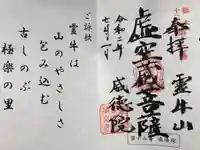 奉拝
靈牛山
虚空蔵菩薩
威徳院
令和二年
ご詠歌
靈牛は
山のやさしさ
包み込む
古しのぶ
極楽の里